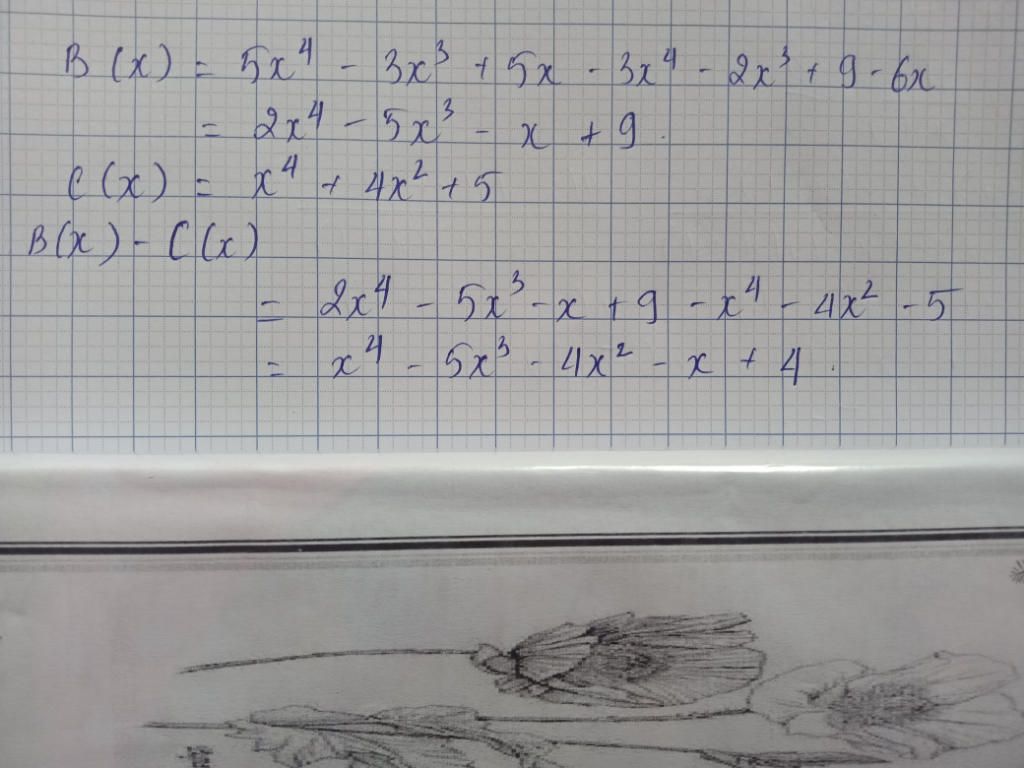 B(x) = 5x⁴ - 3x³ + 5x - 3x⁴ - 2x³ + 9 - 6x
= 2x⁴ - 5x³ - x + 9.
C(x) = x⁴ + 4x² + 5
B(x) - C(x)
= 2x⁴ - 5x³ - x + 9 - x⁴ - 4x² - 5
= x⁴ - 5x³ - 4x² - x + 4.